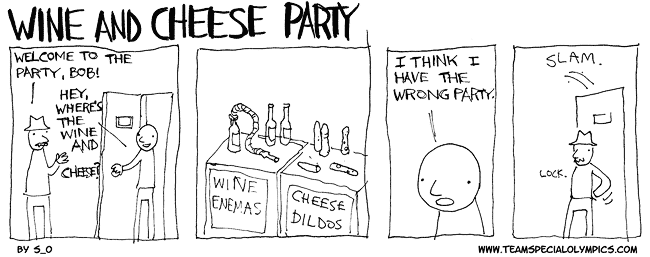 WINE AND CHEESE PARTY
WELCOME TO THE
PARTY, BOB!
HEY,
WHERE'S
THE
WINE
AND
CHEESE?
WINE
ENEMAS
CHEESE
DILDOS
I THINK I
HAVE THE
WRONG PARTY.
SLAM.
LOCK.
BY S_O
WWW.TEAMSPECIALOLYMPICS.COM